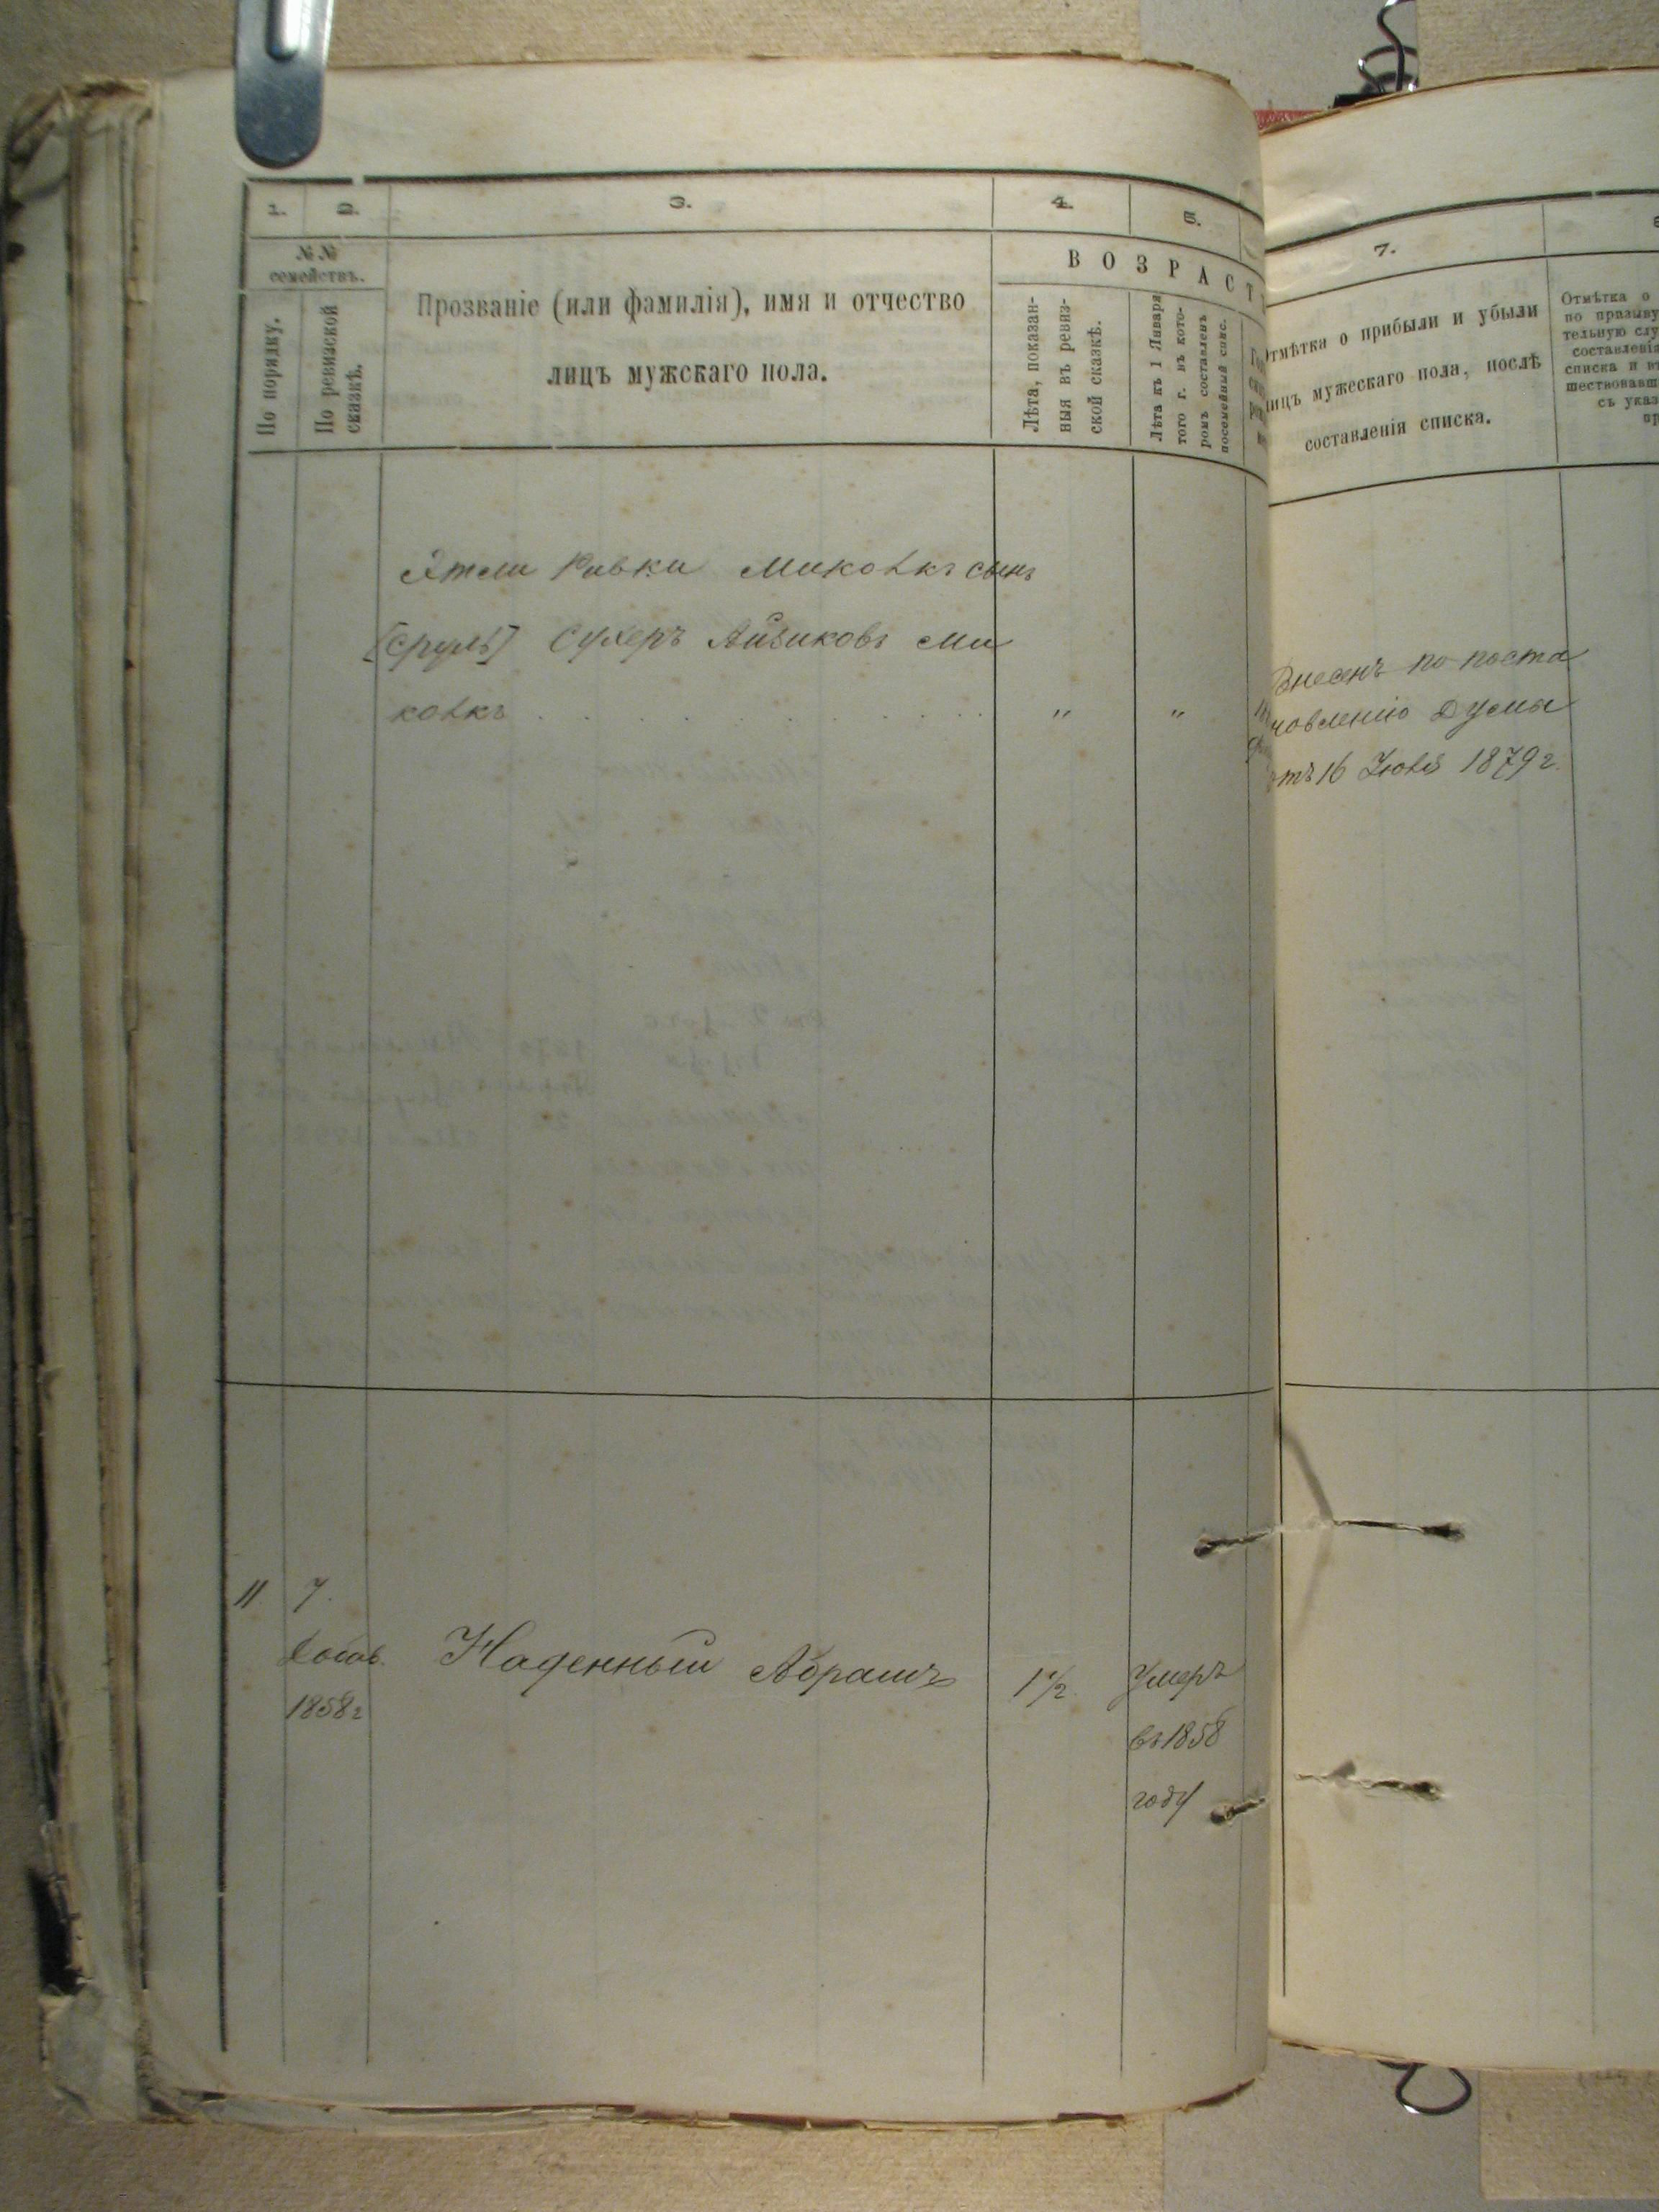 1.
2.
3.
4.
5.
№№
семействъ.
По порядку.
По ревизской
сказкѣ.
Прозваніе (или фамилія), имя и отчество
лицъ мужскаго пола.
ВОЗРАСТ
Лѣта, показан-
ныя въ ревиз-
ской сказкѣ.
Лѣта къ 1 Января
того г. въ кото-
ромъ составленъ
посемейный спис.
Этли Ривки Миковкъ сынъ
[Сруль] Сухеръ Айзиковъ Ми
ковкъ . . . . . . . . . . " "
11 7.
1858 г
Наденный Абрамъ
1 1/2.
Умеръ
въ 1858
году
7.
Отмѣтка о прибыли и убыли
лицъ мужескаго пола, послѣ
составленія списка.
Отмѣтка о
по призыву
тельную слу
составленія
списка и въ
шествовавш
съ указ
пр
Внесенъ по поста
новленію Думы
отъ 16 Іюля 1879 г.